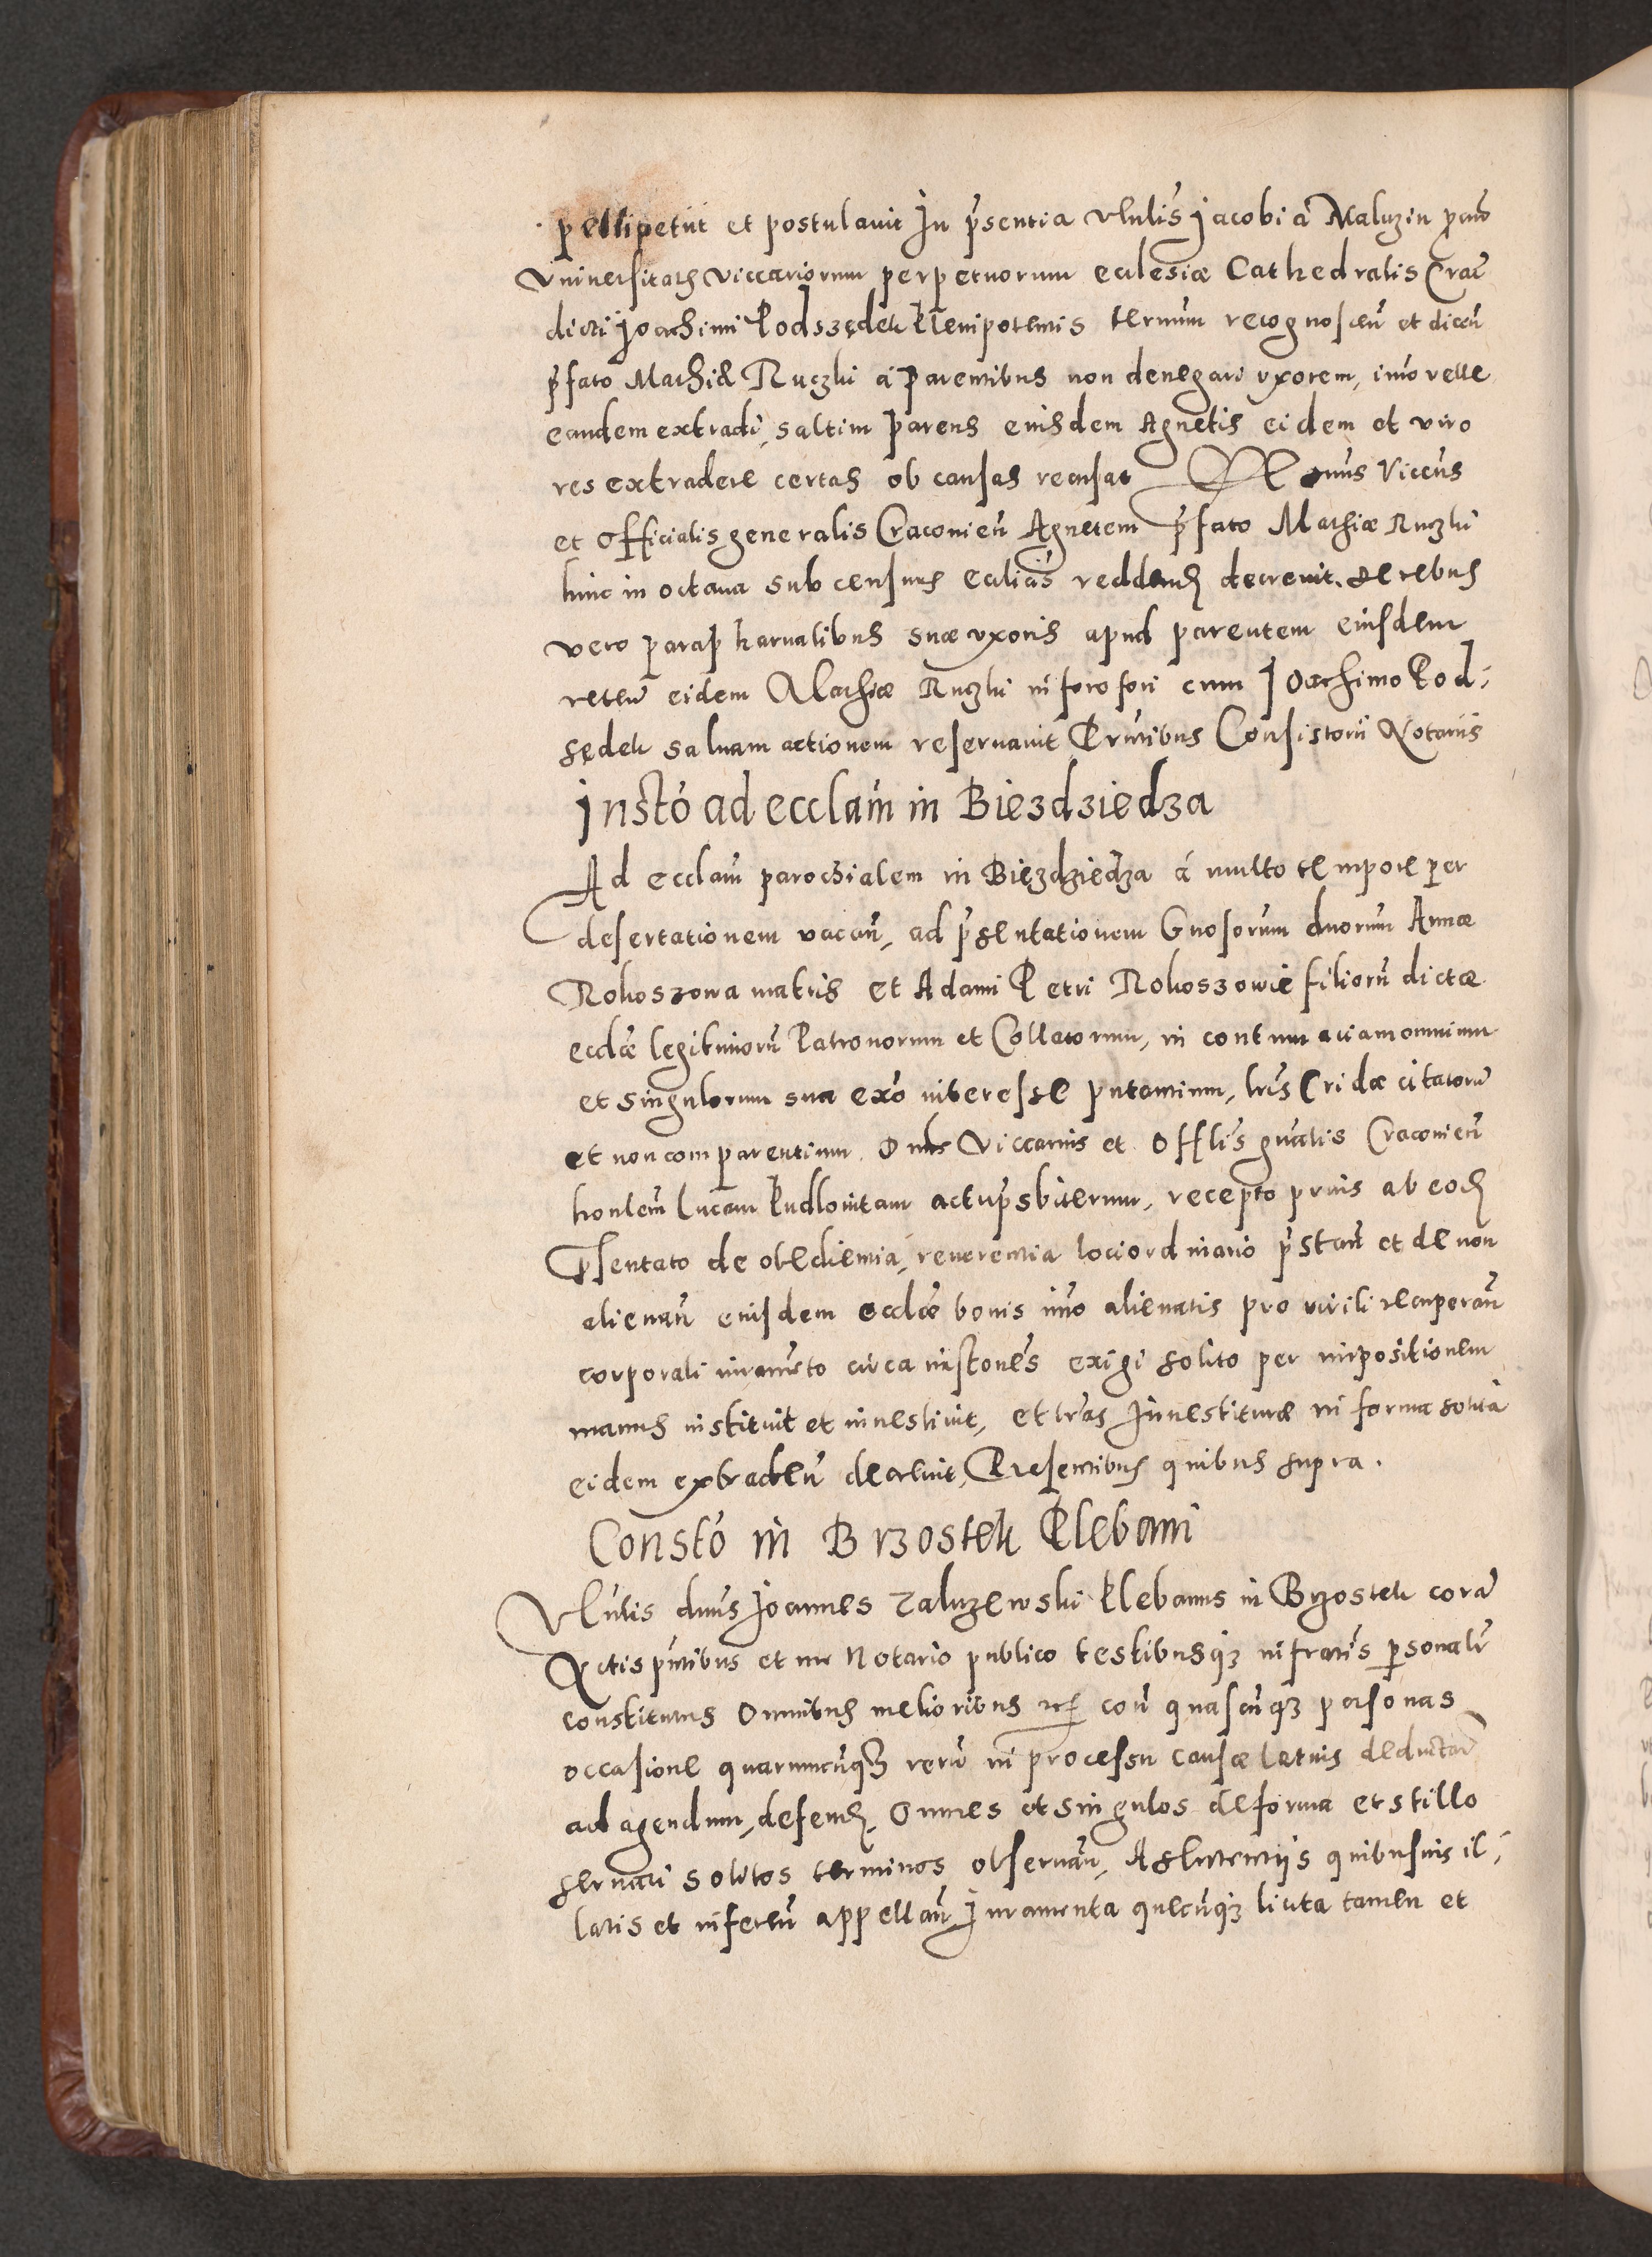 pelli petiit et postulavit In pr̃sentia Vlñlis Jacobi á Maluzin pñto
Vniuersitatis Viccariorum perpetuorum ecclesiæ Cathedralis Crac̃
dicti Joachimi Podszędek Plenipotentis terminum recognoscen̄ et dicen̄
pr̃fato Mathiæ Ruczki á Parentibus non denegari vxorem, imo velle
eandem extradi, saltim Parens eiusdem Agnetis eidem et viro
res extradere certas ob causas recusat Dñus Viccus̃
et Officialis generalis Cracouien̄ Agnetem pr̃fato Mathiæ Ruczki
hinc in octaua sub censuris eccliasˀ reddend̄ decreuit. De rebus
vero paraphernalibus suæ vxoris apud parentem eiusdem
reten̄ eidem Mathiæ Ruczki in foro fori cum Joachimo Pod-
sędek saluam actionem reseruauit Pr̃ntibus Consistorii Notariis
Instō ad ecclam̄ in Biezdziedza
Ad ecclam̄ parochialem in Biezdziedza á multo tempore per
desertationem vacan̄, ad pr̃sentationem Gnosorum dnorum Annæ
Rokoszowa matris et Adami Petri Rokoszowie filiorū dictæ
ecclæ̃ legitimorū Patronorum et Collatorum, in contumaciam omnium
et singulorum sua exō interesse putantium, lris̃ Cridæ citatorū
et non comparentium. Dñs Viccarius et Offlis̃ gnãlis Cracouien̄
honlem̄ Lucam Pudlouitam actu pr̃sbiterum, recepto prius ab eod̄
Pr̃sentato de obedientia, reuerentia loci ordinario pr̃stan̄ et de non
alienan̄ eiusdem ecclæ̃ bonis imo alienatis pro virili recuperan̄
corporali iuramẽto circa instones̃ exigi solito per impositionem
manus instituit et inuestiuit, et lras̃ Inuestituræ in forma solita
eidem extraden̄ decreuit, Presentibus quibus supra.
Constō in Brzostek Plebani
Vlñlis dnus̃ Joannes Zaluzewski Plebanus in Brzostek corã
Actis pñtibus et me Notario publico testibusq̃ infratis̃ personalr̃
constitutus Omnibus melioribus etc̃ con̄ quascũq̃ personas
occasione quarumcũq̃ rerū in processu causæ latius deductar̄
ad agendum, defend̄, Omnes et singulos de forma et stillo
seruari solitos terminos obseruan̄, A sententiis quibusuis il-
latis et inferen̄ appellan̄ Iuramenta quecũq̃ licita tamen et